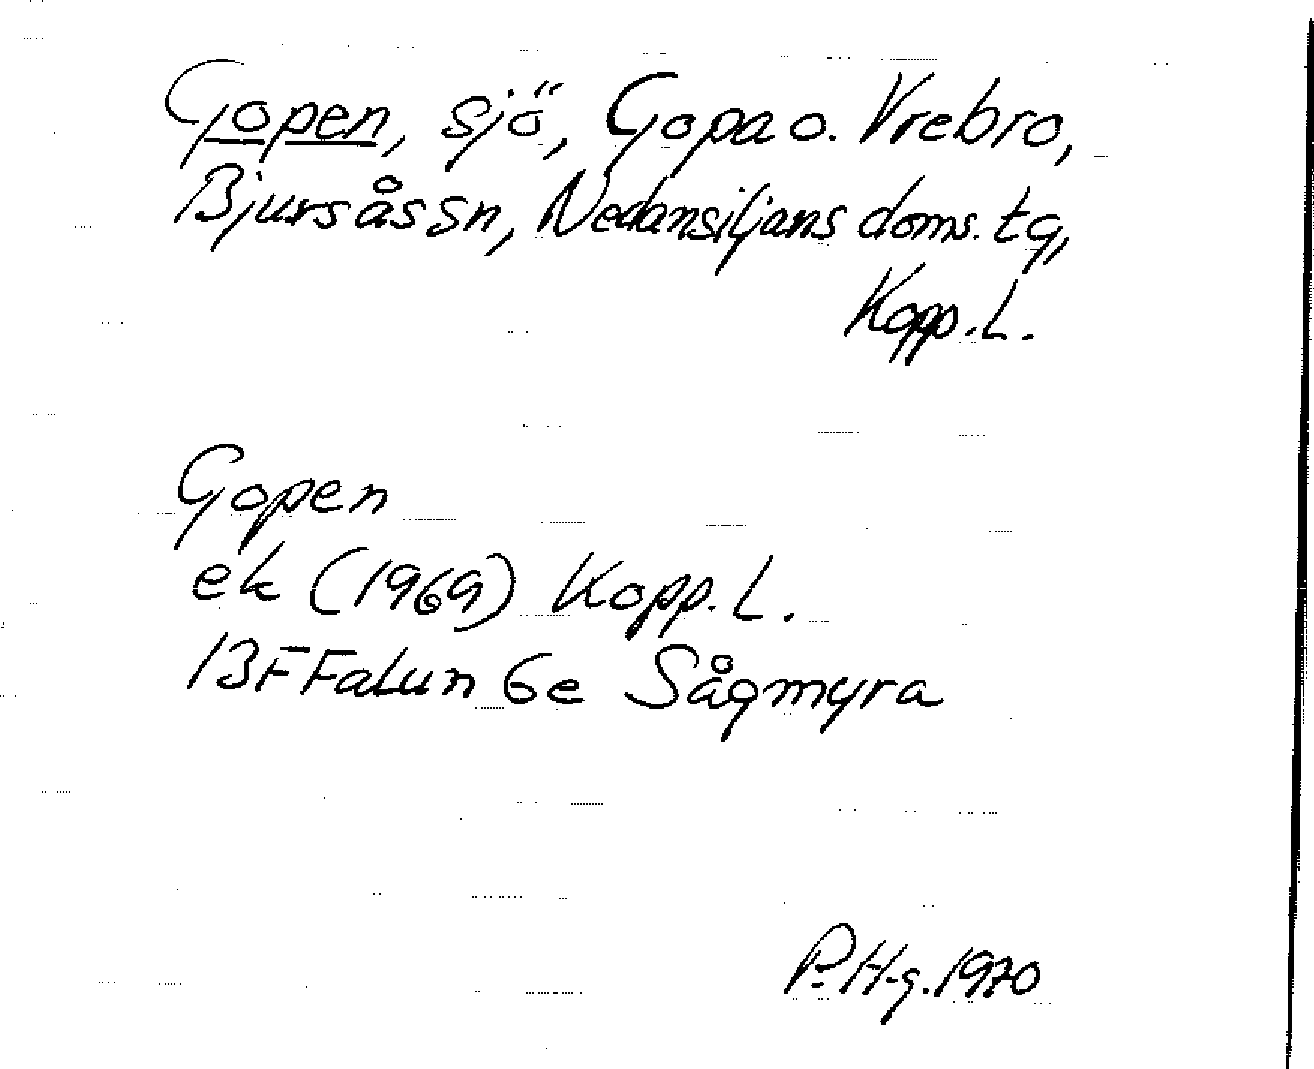 Gopen, sjö, Gopa o. Vrebro,
Bjursås sn, Nedansiljans doms. tg,
Kopp. L.
Gopen
ek (1969) Kopp. L.
13F Falun 6e Sågmyra
P. H-g. 1970